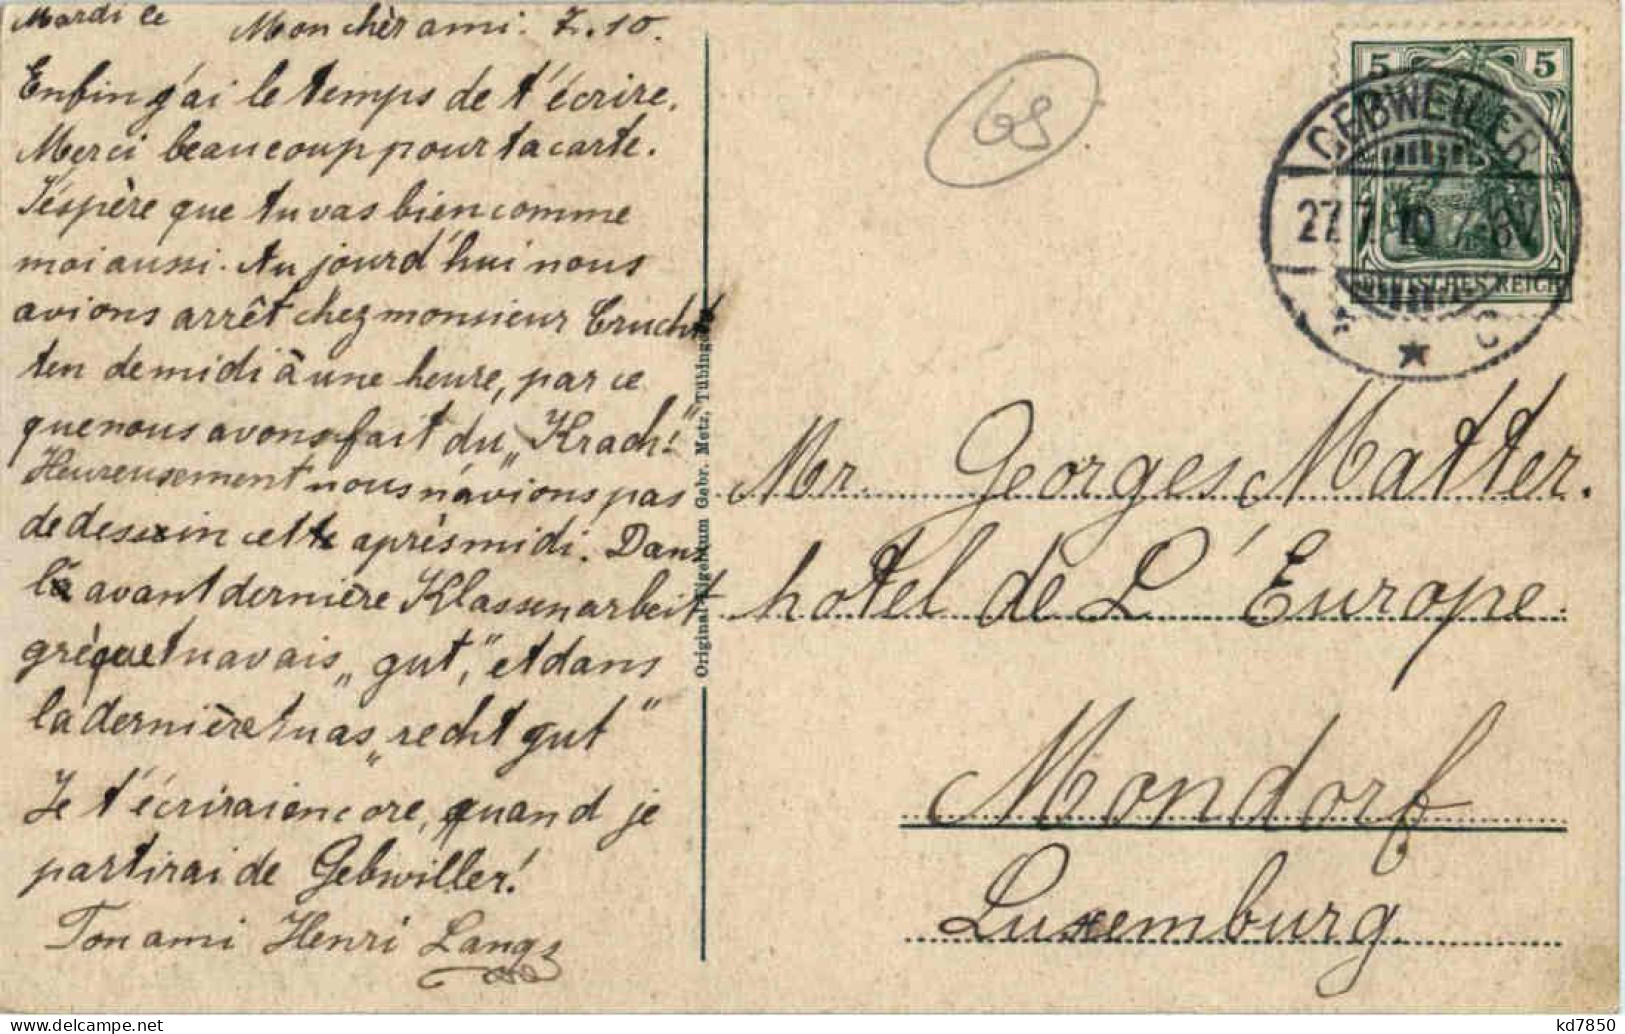 Mardi le Mon chèr ami. 7.10.
Enfin g'ai le temps de t'écrire.
Merci beaucoup pour ta carte.
J'éspère que tu vas bien comme
moi aussi. Au jourd'hui nous
avions arrêt chez monsieur Crucht
ten de midi à une heure, par ce
que nous avons fait du „Krach!"
Heureusement nous n'avions pas
de dessin cette après midi. Dans
la avant dernière Klassenarbeit
grèque tu avais „gut," et dans
la dernière tu as „recht gut"
Je t'écrirai encore, quand je
partirai de Gebwiller!
Ton ami Henri Lang
Original-Eigentum Gebr. Metz, Tübingen
65
5 5
GEBWEILER
27.7.10 7-8V
DEUTSCHES REICH
* c
Mr. Georges Matter.
hotel de L'Europe.
Mondorf
Luxemburg.
kd7850